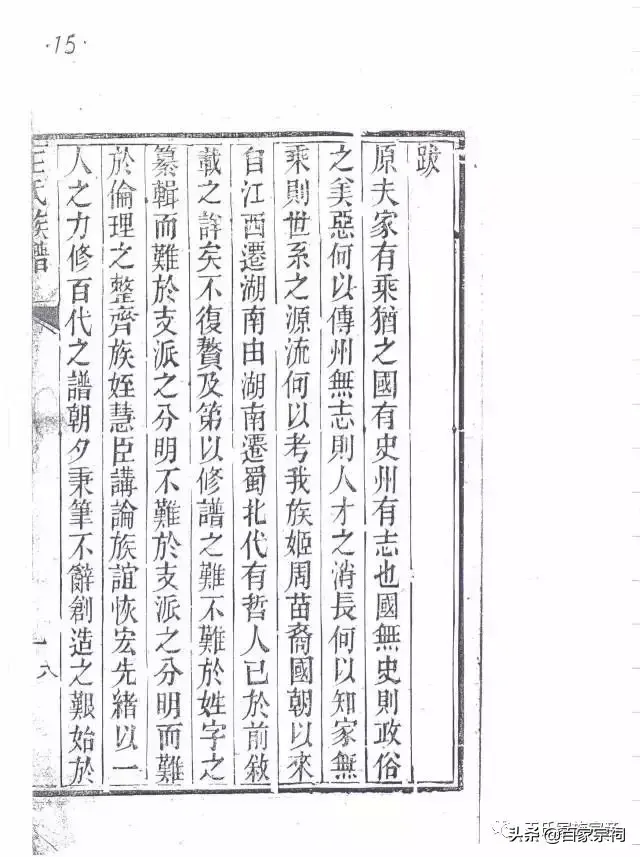 ·15·
跋
原夫家有乘猶之國有史州有志也國無史則政俗
之美惡何以傳州無志則人才之消長何以知家無
乘則世系之源流何以考我族姬周苗裔國朝以來
自江西遷湖南由湖南遷蜀北代有哲人已於前敘
載之詳矣不復贅及第以修譜之難不難於姓字之
纂輯而難於支派之分明不難於支派之分明而難
於倫理之整齊族姪慧臣講論族誼恢宏先緒以一
人之力修百代之譜朝夕秉筆不辭創造之艱始於
王氏族譜
六
王氏家族宗亲
头条 @百家宗祠